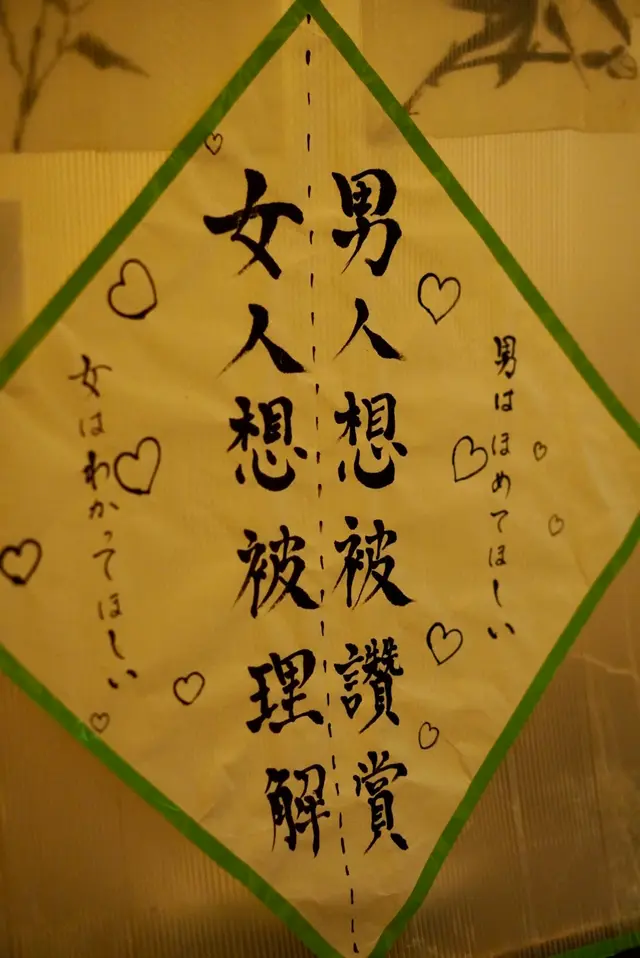 男はほめてほしい
男人想被讚賞
女人想被理解
女はわかってほしい